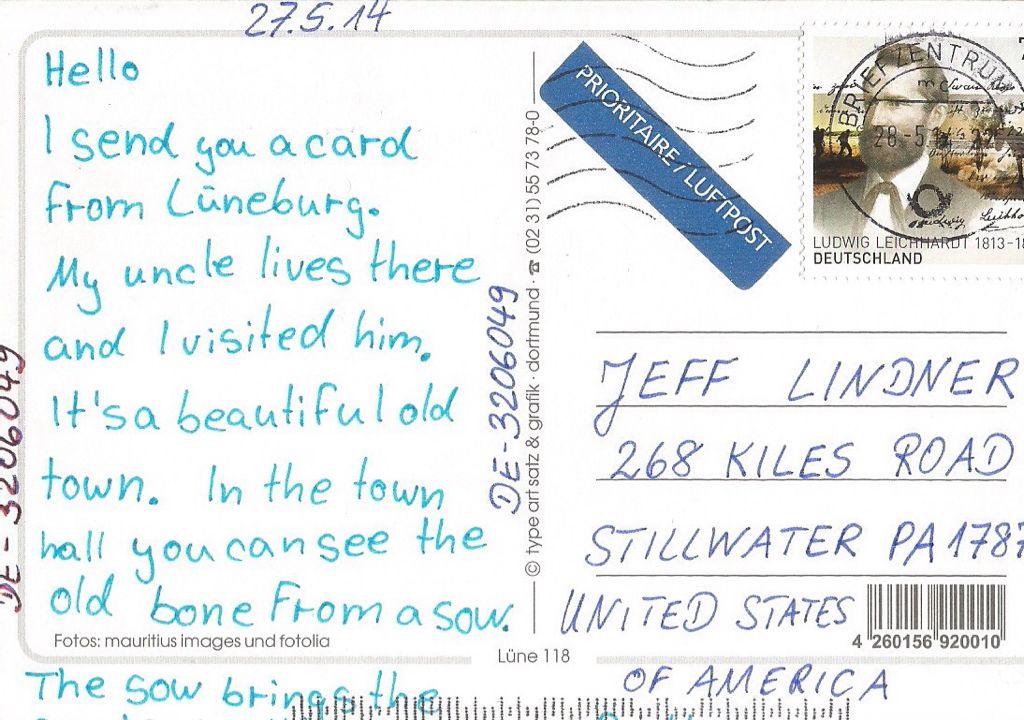 27.5.14
Hello
I send you a card
from Lüneburg.
My uncle lives there
and I visited him.
It's a beautiful old
town. In the town
hall you can see the
old bone from a sow.
Fotos: mauritius images und fotolia
The sow brings the
DE-3206049
DE-3206049
© type art satz & grafik · dortmund · ☎ (02 31) 55 73 78-0
Lüne 118
PRIORITAIRE / LUFTPOST
BRIEFZENTRUM
28-5
LUDWIG LEICHHARDT 1813-18
DEUTSCHLAND
JEFF LINDNER
268 KILES ROAD
STILLWATER PA 1787
UNITED STATES
OF AMERICA
4 260156 920010